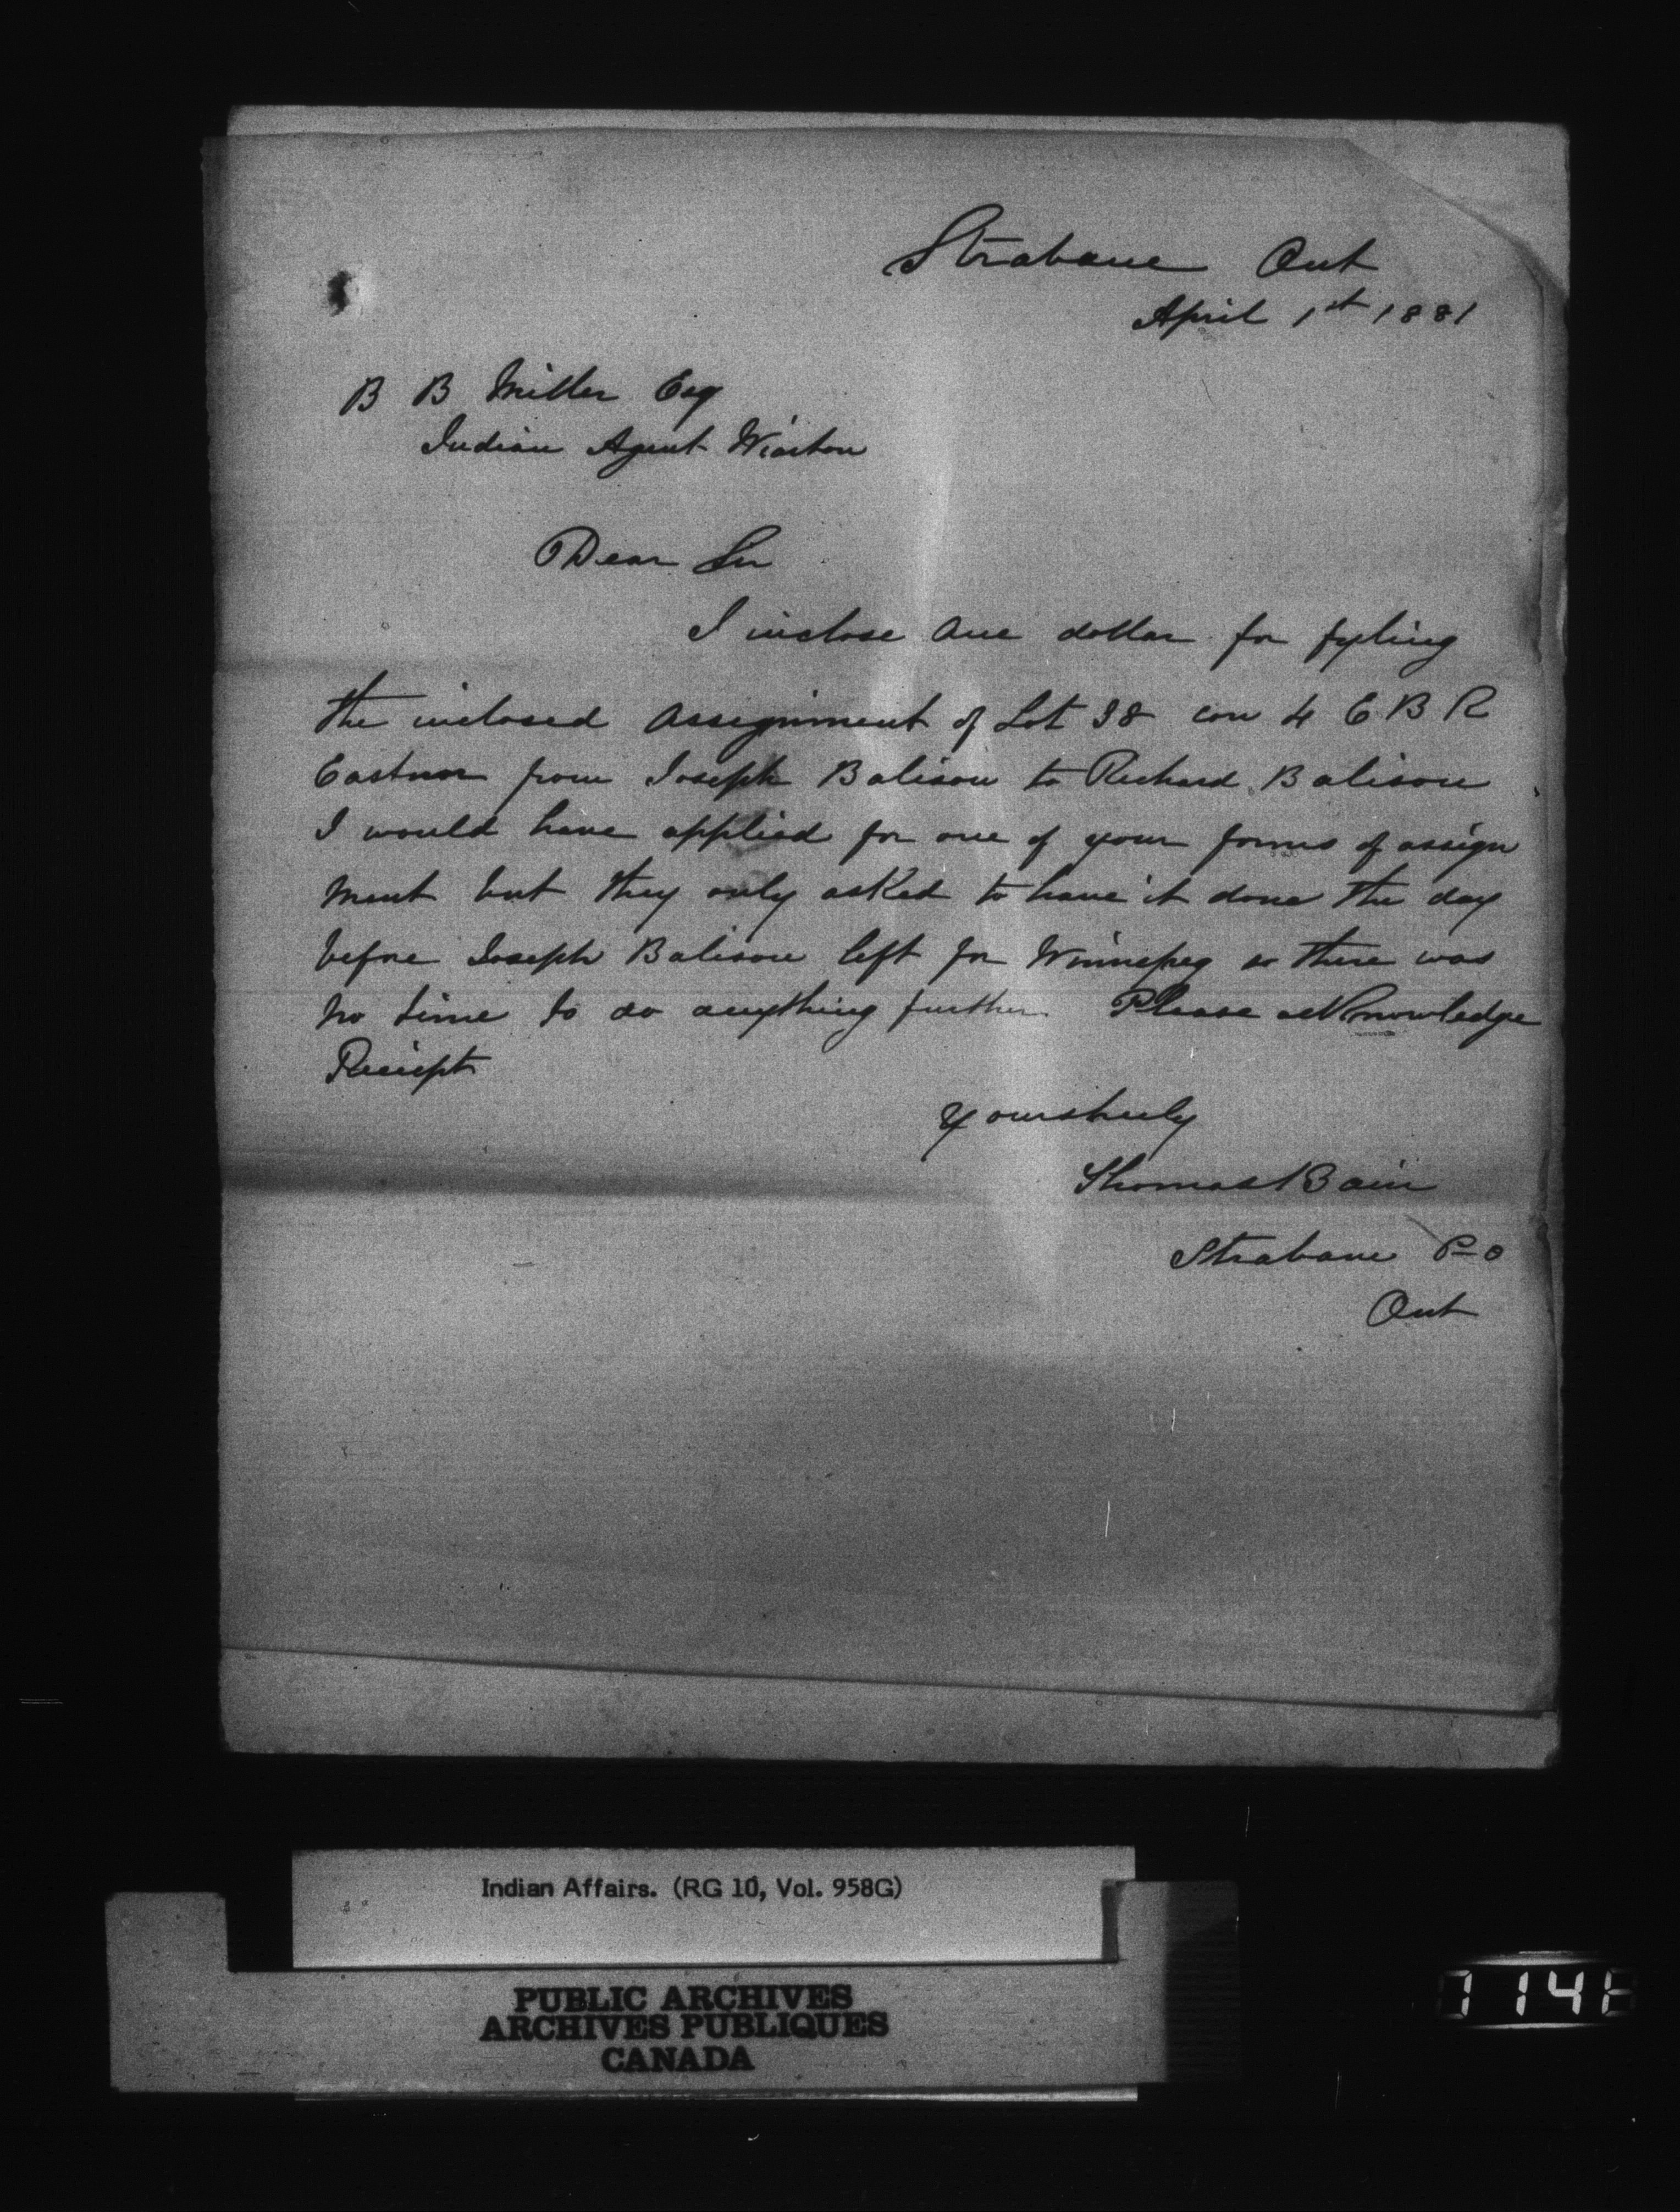 Strabane Ont
April 1st 1881
B B Miller Esq
Indian Agent Wiarton
Dear Sir
I inclose one dollar for fyling
the inclosed assignment of Lot 38 con 4 E B R
Eastnor from Joseph Balison to Richard Balison
I would have applied for one of your forms of assign
ment but they only asked to have it done the day
before Joseph Balison left for Winnepeg so there was
no time to do anything further Please acknowledge
Reciept
Yours truly
Thomas Bain
Strabane P-O
Ont
Indian Affairs. (RG 10, Vol. 958G)
PUBLIC ARCHIVES
ARCHIVES PUBLIQUES
CANADA